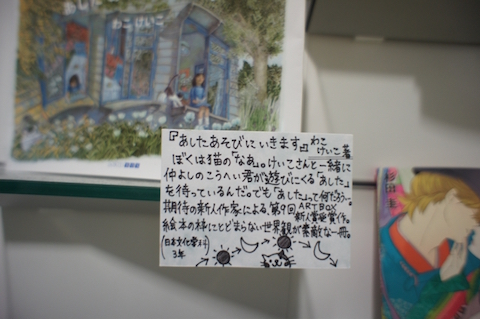 あしたに
わこ けいこ
『あしたあそびにいきます。』 わこけいこ著
ぼくは猫の「なあ」。けいこさんと一緒に
仲よしのこうへい君が遊びにくる「あした」
を待っているんだ。でも「あした」って何だろう…。
期待の新人作家による、第9回 ARTBOX
新人賞受賞作。
絵本の枠にとどまらない世界観が素敵な一冊。
(日本文化学科
3年